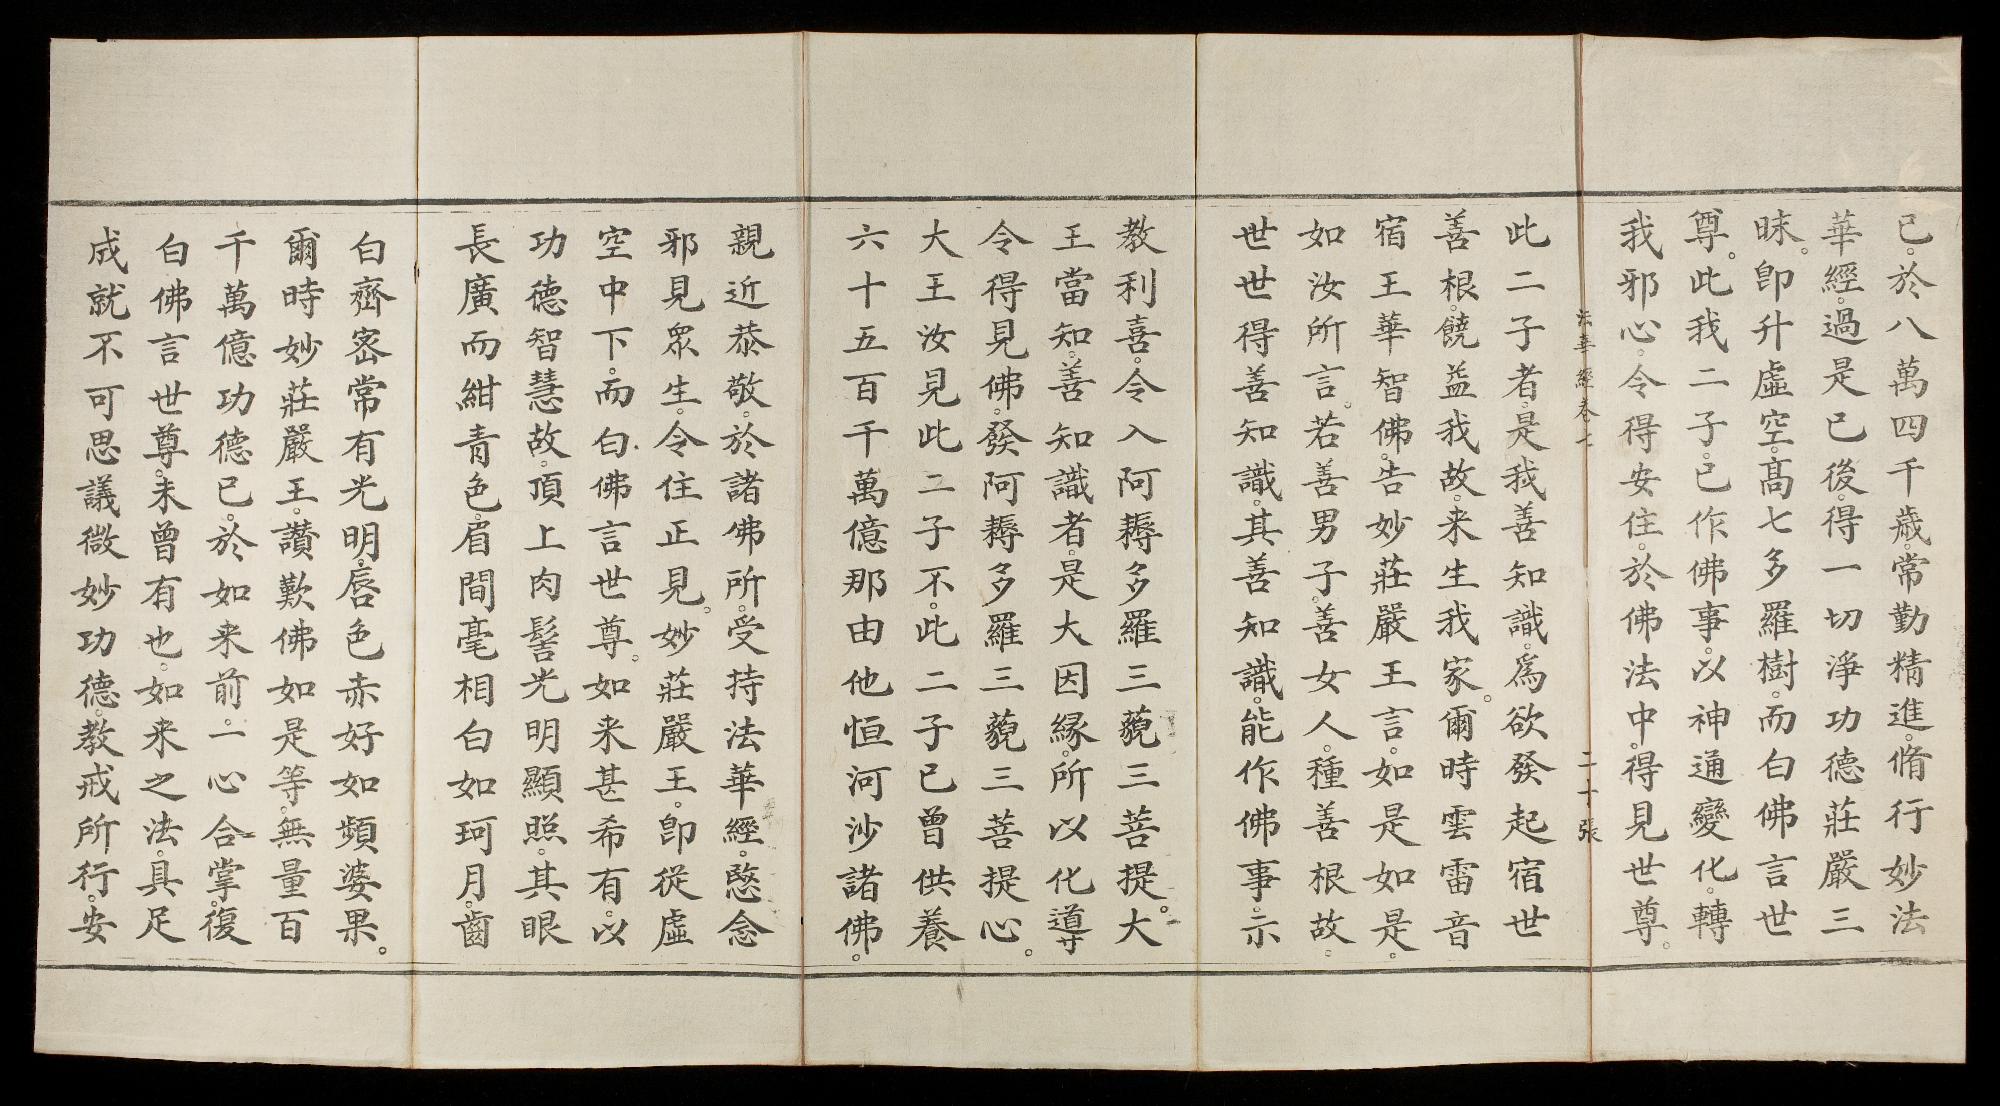 已。於八萬四千歳。常勤精進。脩行妙法
華經。過是已後。得一切淨功德莊嚴三
昧。卽升虛空。髙七多羅樹。而白佛言世
尊。此我二子。已作佛事。以神通變化。轉
我邪心。令得安住。於佛法中。得見世尊。
法華經卷七 二十張
此二子者。是我善知識。爲欲發起宿世
善根。饒益我故。来生我家。爾時雲雷音
宿王華智佛。告妙莊嚴王言。如是如是。
如汝所言。若善男子。善女人。種善根故。
世世得善知識。其善知識。能作佛事。示
教利喜。令入阿耨多羅三藐三菩提。大
王當知。善知識者。是大因縁。所以化導
令得見佛。發阿耨多羅三藐三菩提心。
大王汝見此二子不。此二子已曾供養
六十五百千萬億那由他恒河沙諸佛。
親近恭敬。於諸佛所。受持法華經。愍念
邪見眾生。令住正見。妙莊嚴王。卽從虛
空中下。而白佛言世尊。如来甚希有。以
功德智慧故。頂上肉髻光明顯照。其眼
長廣而紺青色。眉間毫相白如珂月。齒
白齊宻常有光明。唇色赤好如頻婆果。
爾時妙莊嚴王。讚歎佛如是等。無量百
千萬億功德已。於如来前。一心合掌。復
白佛言世尊。未曾有也。如来之法。具足
成就不可思議微妙功德。教戒所行。安